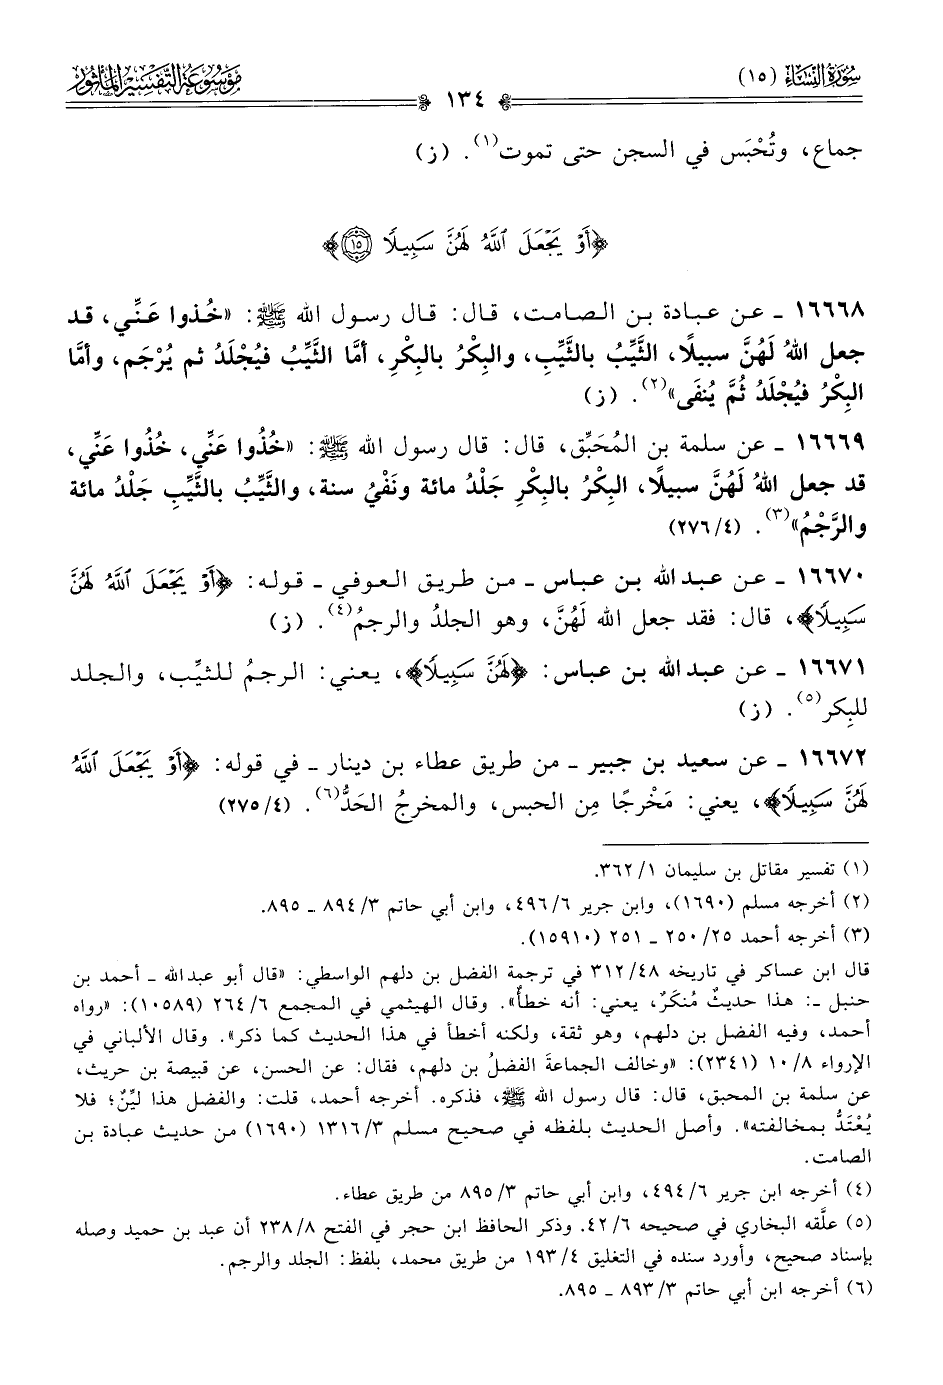 سُورَةُ النِّسَاءِ (١٥)
مَوْسُوعَةُ التَّفْسِيرِ المَأْثُور
١٣٤
جماع، وتُحْبَس في السجن حتى تموت(١). (ز)
﴿أَوْ يَجْعَلَ ٱللَّهُ لَهُنَّ سَبِيلًا ١٥﴾
١٦٦٦٨ ـ عن عبادة بن الصامت، قال: قال رسول الله ﷺ: «خُذوا عَنِّي، قد
جعل اللهُ لَهُنَّ سبيلًا، الثَّيِّبُ بالثَّيِّبِ، والبِكْرُ بالبِكْرِ، أمَّا الثَّيِّبُ فيُجْلَدُ ثم يُرْجَم، وأمَّا
البِكْرُ فيُجْلَدُ ثُمَّ يُنفَى»(٢). (ز)
١٦٦٦٩ ـ عن سلمة بن المُحَبِّق، قال: قال رسول الله ﷺ: «خُذُوا عَنِّي، خُذُوا عَنِّي،
قد جعل اللهُ لَهُنَّ سبيلًا، البِكْرُ بالبِكْرِ جَلْدُ مائة ونَفْيُ سنة، والثَّيِّبُ بالثَّيِّبِ جَلْدُ مائة
والرَّجْمُ»(٣). (٤/ ٢٧٦)
١٦٦٧٠ ـ عن عبد الله بن عباس ـ من طريق العوفي ـ قوله: ﴿أَوْ يَجْعَلَ ٱللَّهُ لَهُنَّ
سَبِيلًا﴾، قال: فقد جعل الله لَهُنَّ، وهو الجلدُ والرجمُ(٤). (ز)
١٦٦٧١ ـ عن عبد الله بن عباس: ﴿لَهُنَّ سَبِيلًا﴾، يعني: الرجمُ للثيِّب، والجلد
للبِكر(٥). (ز)
١٦٦٧٢ ـ عن سعيد بن جبير ـ من طريق عطاء بن دينار ـ في قوله: ﴿أَوْ يَجْعَلَ ٱللَّهُ
لَهُنَّ سَبِيلًا﴾، يعني: مَخْرجًا مِن الحبس، والمخرجُ الحَدُّ(٦). (٤/ ٢٧٥)
(١) تفسير مقاتل بن سليمان ١/ ٣٦٢.
(٢) أخرجه مسلم (١٦٩٠)، وابن جرير ٦/ ٤٩٦، وابن أبي حاتم ٣/ ٨٩٤ ـ ٨٩٥.
(٣) أخرجه أحمد ٢٥/ ٢٥٠ ـ ٢٥١ (١٥٩١٠).
قال ابن عساكر في تاريخه ٤٨/ ٣١٢ في ترجمة الفضل بن دلهم الواسطي: «قال أبو عبدالله ـ أحمد بن
حنبل ـ: هذا حديثٌ مُنكَرٌ، يعني: أنه خطأٌ». وقال الهيثمي في المجمع ٦/ ٢٦٤ (١٠٥٨٩): «رواه
أحمد، وفيه الفضل بن دلهم، وهو ثقة، ولكنه أخطأ في هذا الحديث كما ذكر». وقال الألباني في
الإرواء ٨/ ١٠ (٢٣٤١): «وخالف الجماعةَ الفضلُ بن دلهم، فقال: عن الحسن، عن قبيصة بن حريث،
عن سلمة بن المحبق، قال: قال رسول الله ﷺ، فذكره. أخرجه أحمد، قلت: والفضل هذا ليِّنٌ؛ فلا
يُعْتَدُّ بمخالفته». وأصل الحديث بلفظه في صحيح مسلم ٣/ ١٣١٦ (١٦٩٠) من حديث عبادة بن
الصامت.
(٤) أخرجه ابن جرير ٦/ ٤٩٤، وابن أبي حاتم ٣/ ٨٩٥ من طريق عطاء.
(٥) علَّقه البخاري في صحيحه ٦/ ٤٢. وذكر الحافظ ابن حجر في الفتح ٨/ ٢٣٨ أن عبد بن حميد وصله
بإسناد صحيح، وأورد سنده في التغليق ٤/ ١٩٣ من طريق محمد، بلفظ: الجلد والرجم.
(٦) أخرجه ابن أبي حاتم ٣/ ٨٩٣ ـ ٨٩٥.